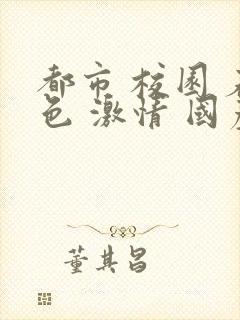 都市 校園 
色 激情 國
董其昌